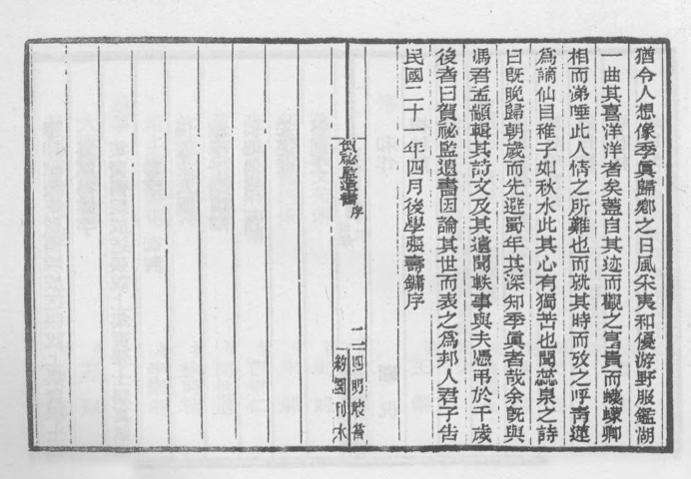 猶令人想像季眞歸鄕之日風采夷和優游野服鑑湖
一曲其喜洋洋者矣蓋自其迹而觀之富貴而蠛蠓卿
相而涕唾此人情之所難也而就其時而攷之呼靑蓮
爲謫仙目稚子如秋水此其心有獨苦也聞蕊泉之詩
曰旣晚歸朝歲而先避蜀年其深知季眞者哉余旣與
馮君孟顓輯其詩文及其遺聞軼事與夫憑弔於千歲
後者曰賀祕監遺書因論其世而表之爲邦人君子吿
民國二十一年四月後學張壽鏞序
賀祕監遺書 序
二
四明叢書
約園刊本